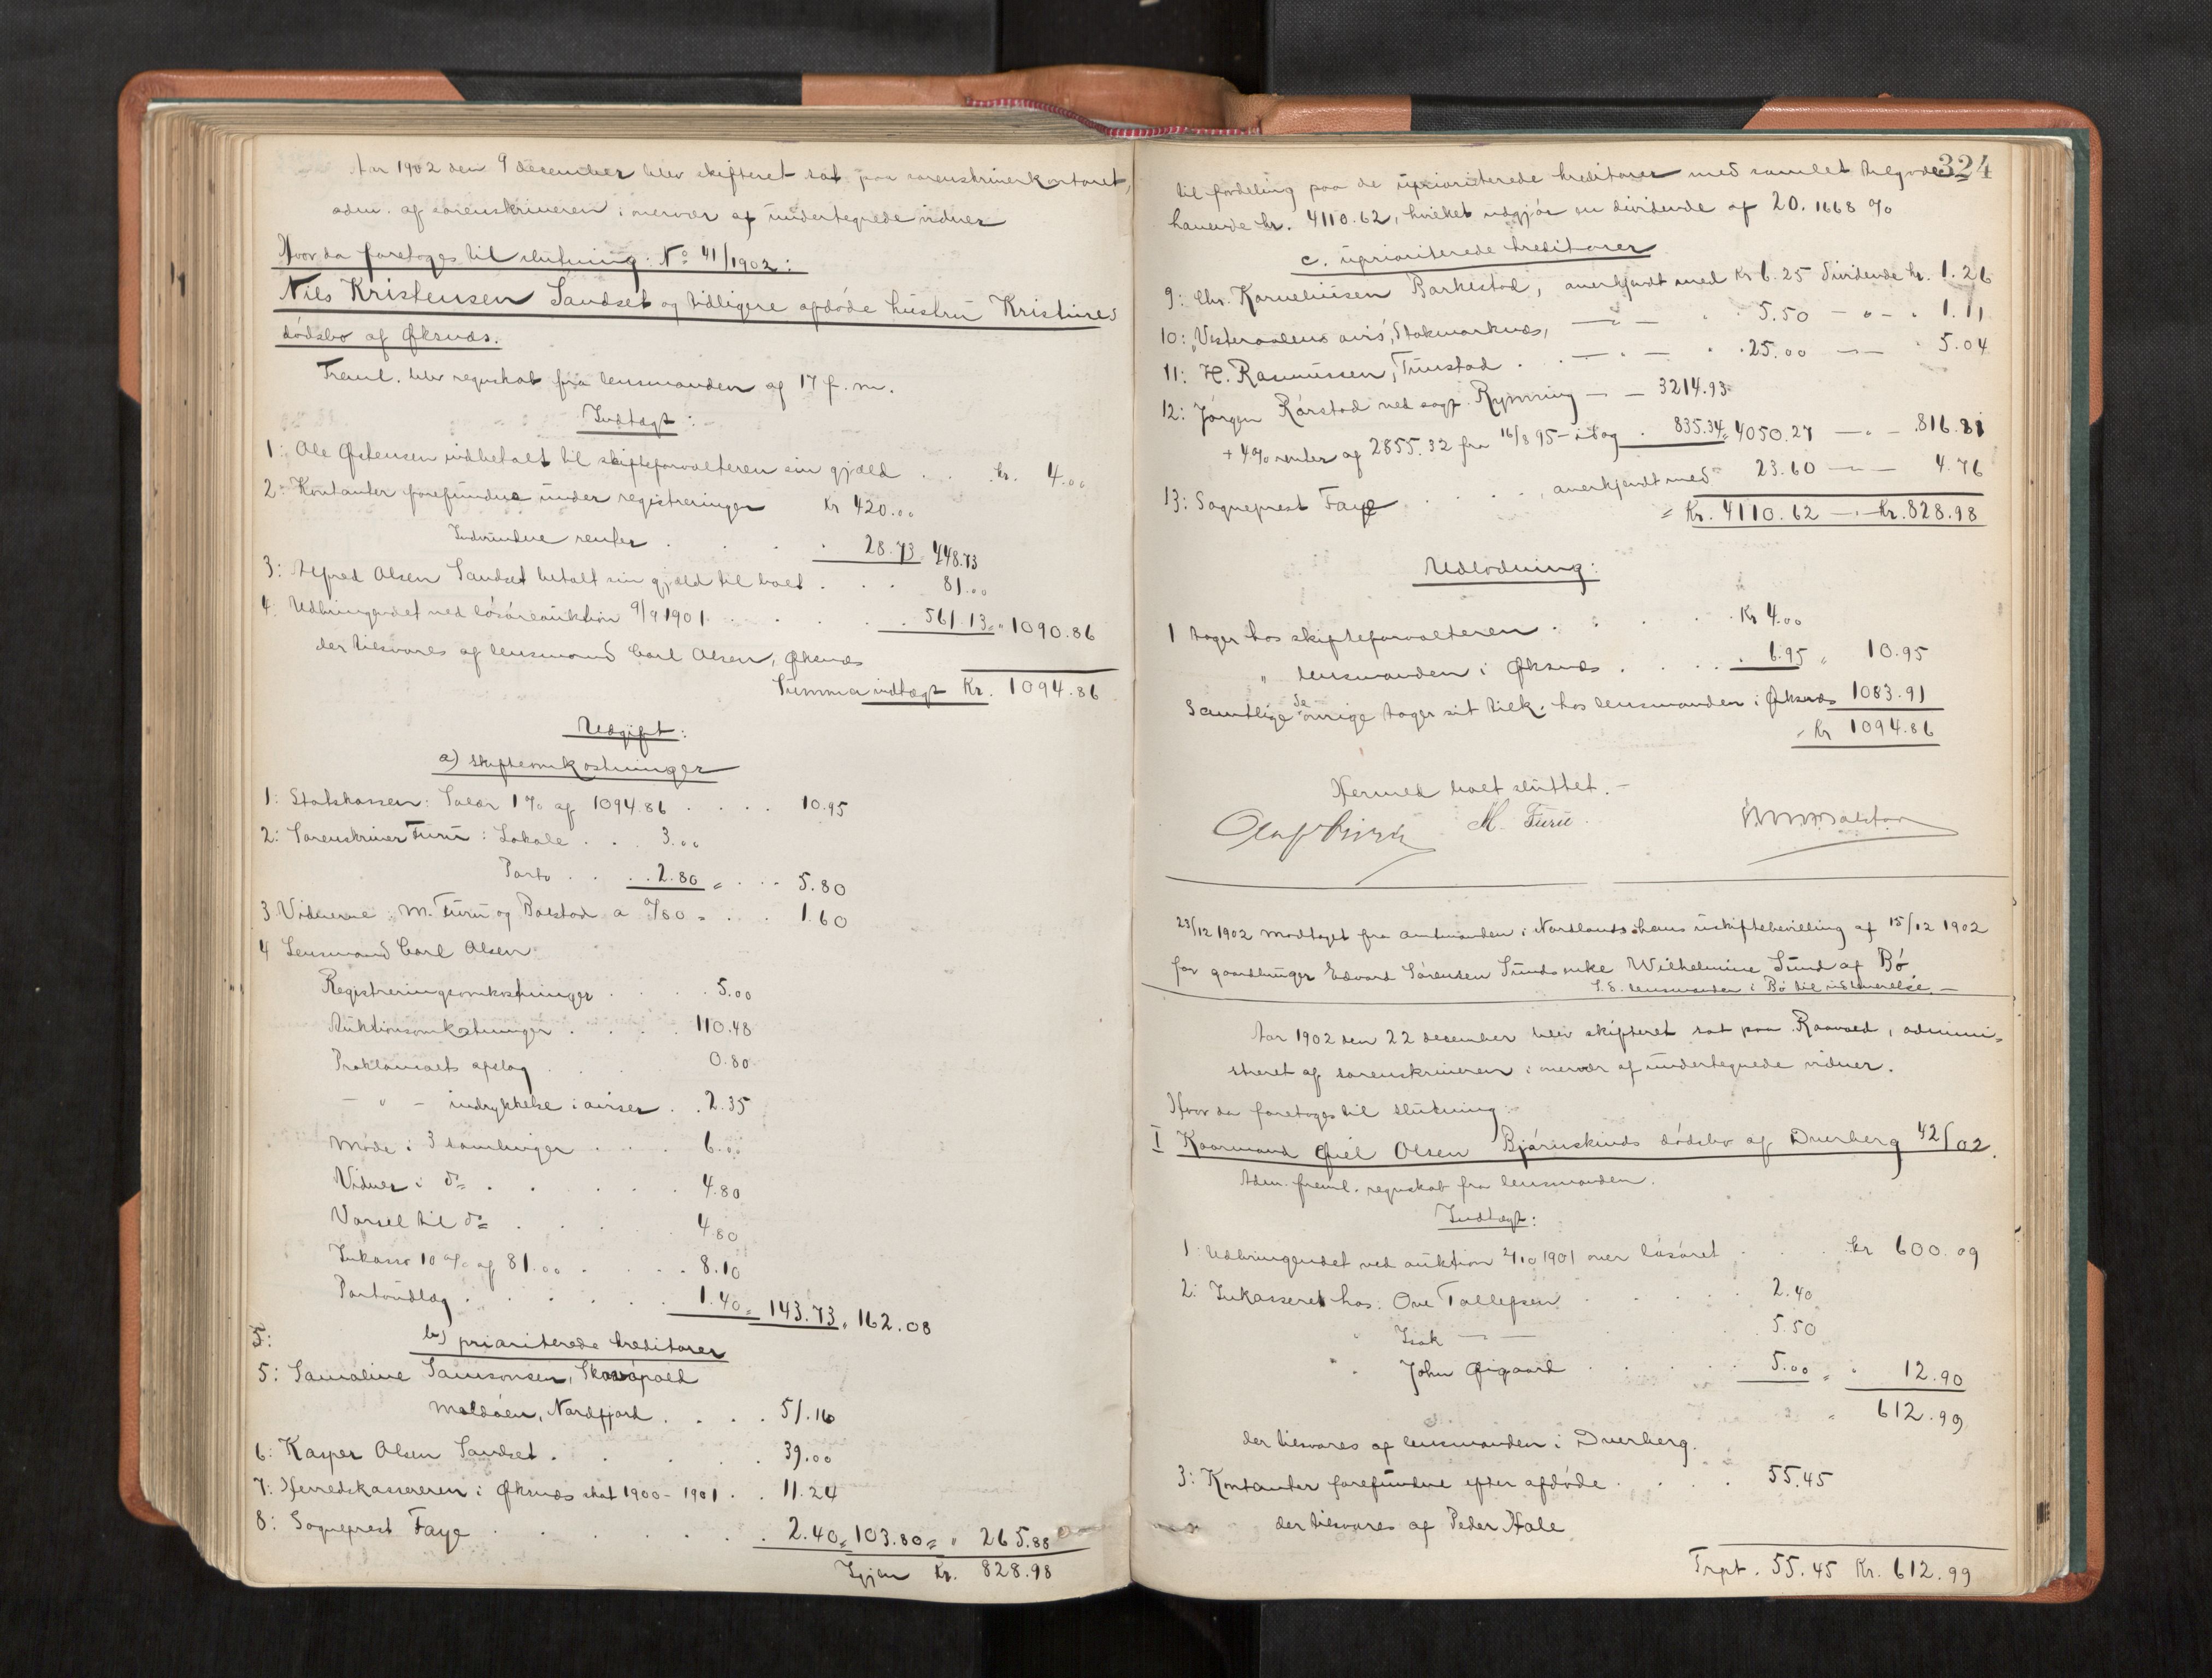 Aar 1902 den 9 december blev skifteret sat paa sorenskriverkontoret,
adm. af sorenskriveren i overvær af undertegnede vidner
Hvor da foretoges til slutning: No 41/1902:
Nils Kristensen Sandset og tidligere afdøde hustru Kristines
dødsbo af Øksnæs.
Freml. blev regnskab fra lensmanden af 17 f. m.
Indtægt:
1: Ole Østensen indbetalt til skifteforvalteren sin gjæld . . . kr. 4.00
2: Kontanter forefundne under registreringen Kr 420.00
Indvundne renter . . . . 28.73 = 448.73
3: Alfred Olsen Sandset betalt sin gjæld til boet . . . 81.00
4: Udbringendet ved løsøreauktion 9/9 1901 . . . . . 561.13 = " 1090.86
der tilsvares af lensmand Carl Olsen, Øksnæs
Summa indtægt Kr. 1094.86
Udgift:
a) skifteomkostninger
1: Statskassen: Salær 1% af 1094.86 . . . . 10.95
2: Sorenskriver Furu: Lokale . . . 3.00
Porto . . . 2.80 = . . . 5.80
3 Vidnerne: M. Furu og Balstad a 0/80 = . . . 1.60
4 Lensmand Carl Olsen:
Registreringsomkostninger . . . . 5.00
Auktionsomkostninger . . . . 110.48
Proklamaets opslag . . . . 0.80
— " — indrykkelse i aviser . . 2.35
Møde i 3 samlinger . . . . 6.00
Vidner i do . . . . . . 4.80
Varsel til do . . . . . 4.80
Inkasso 10% af 81.00 . . . . . 8.10
Portoudlæg . . . . . . 1.40 = 143.73 = 162.08
5:
b) prioriterede kreditorer
5: Samoline Samsonsen, Skavøpold
Moldøen, Nordfjord . . . . 51.16
6: Kasper Olsen Sandset . . . . . 39.00
7: Herredskassereren i Øksnæs skat 1900 - 1901 . . 11.24
8: Sogneprest Faye . . . . . . . 2.40 = 103.80 = " 265.88
Igjen Kr. 828.98
324
til fordeling paa de uprioriterede kreditorer med samlet tilgodeha=
havende kr. 4110.62, hvilket udgjør en dividende af 20.1668 %
c. uprioriterede kreditorer
9: Chr. Korneliusen Barkestad, anerkjendt med Kr 6.25 Dividende kr. 1.26
10: "Vesteraalens avis", Stokmarknæs, — " — 5.50 — " — 1.11
11: H. Rasmussen, Tunstad . . — " — 25.00 — " — 5.04
12: Jørgen Rørstad ved sagf. Rynning — — 3214.93
+ 4% renter af 2855.32 fra 16/8 95 - idag . 835.34 = 4050.27 — " — 816.81
13: Sogneprest Faye . . . . , anerkjendt med 23.60 — " — 4.76
= Kr. 4110.62 — Kr. 828.98
Udlodning:
1 tager hos skifteforvalteren . . . . . Kr 4.00
" lensmanden i Øksnæs . . . . 6.95 " 10.95
Samtlige de øvrige tager sit tilk. hos lensmanden i Øksnæs 1083.91
= Kr 1094.86
Hermed boet sluttet. —
M. Furu
23/12 1902 modtaget fra amtmanden i Nordlands amt uskiftebevilling af 15/12 1902
for gaardbruger Edvard Sørensen Sunds enke Wilhelmine Sund af Bø
S. d. lensmanden i Bø til udleverelse. —
Aar 1902 den 22 december blev skifteret sat paa Raavold, admini=
streret af sorenskriveren i overvær af undertegnede vidner.
Hvor da foretoges til slutning:
I Kaarmand Eliel Olsen Bjørnskinds dødsbo af Dverberg 42/02.
Adm. freml. regnskab fra lensmanden.
Indtægt:
1: Udbringendet ved auktion 2/10 1901 over løsøret . . . kr 600.09
2: Inkasseret hos: Ove Tollefsen . . . . . 2.40
" Isak — " — 5.50
" John Øigaard . . . . . 5.00 = " 12.90
" 612.99
der tilsvares af lensmanden i Dverberg.
3: Kontanter forefundne efter afdøde . . . . 55.45
der tilsvares af Peder Hole
Trpt. 55.45 Kr. 612.99